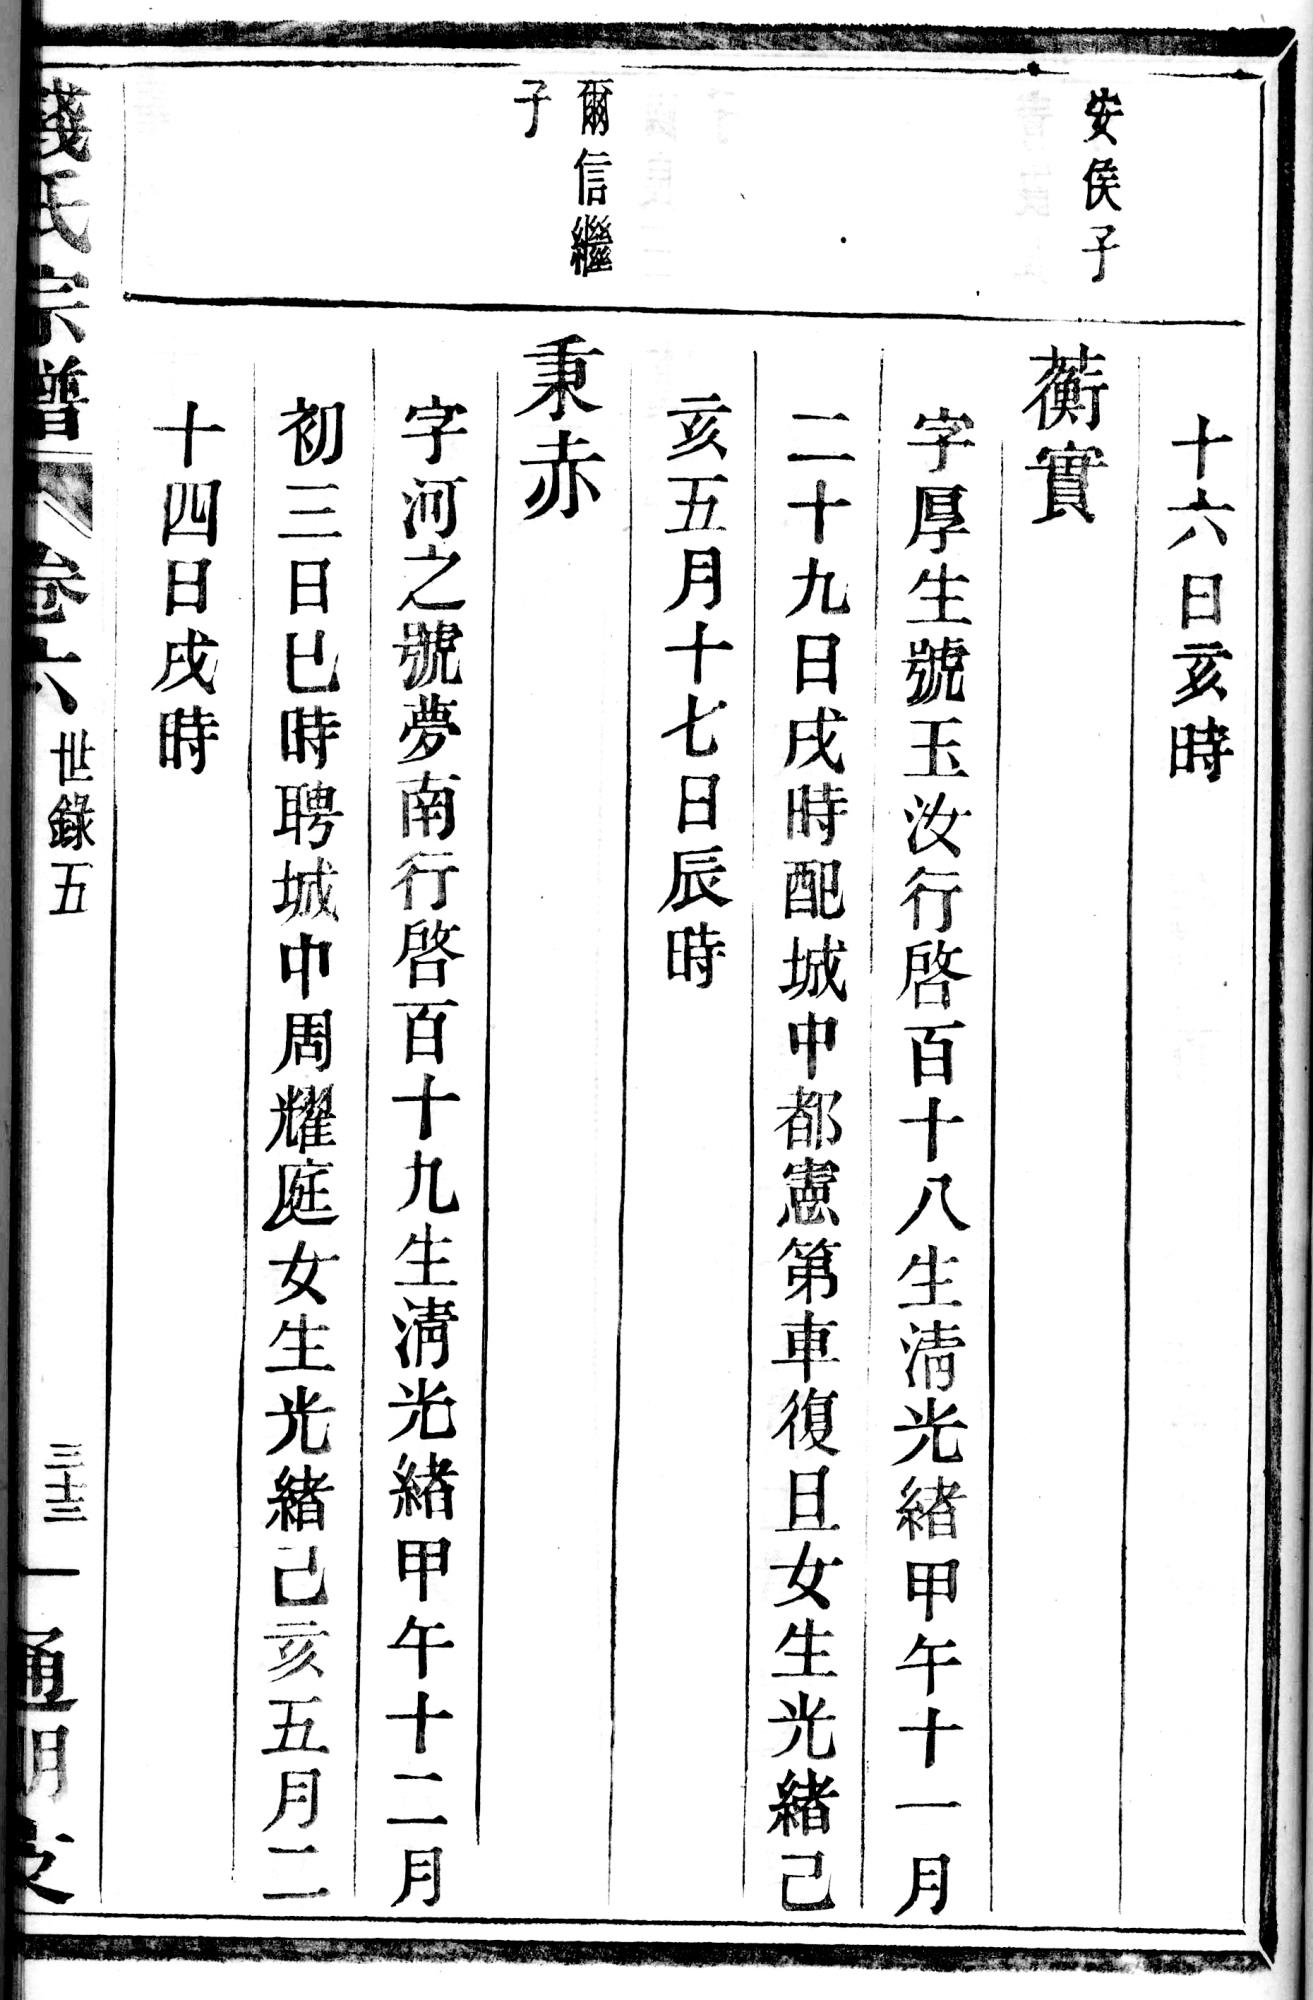 十六日亥時
安侯子
蘅實
字厚生號玉汝行啓百十八生淸光緒甲午十一月
二十九日戌時配城中都憲第車復旦女生光緒己
亥五月十七日辰時
爾信繼
子
秉赤
字河之號夢南行啓百十九生淸光緒甲午十二月
初三日巳時聘城中周耀庭女生光緒己亥五月二
十四日戌時
錢氏宗譜
卷六
世錄五
三十三
通明支